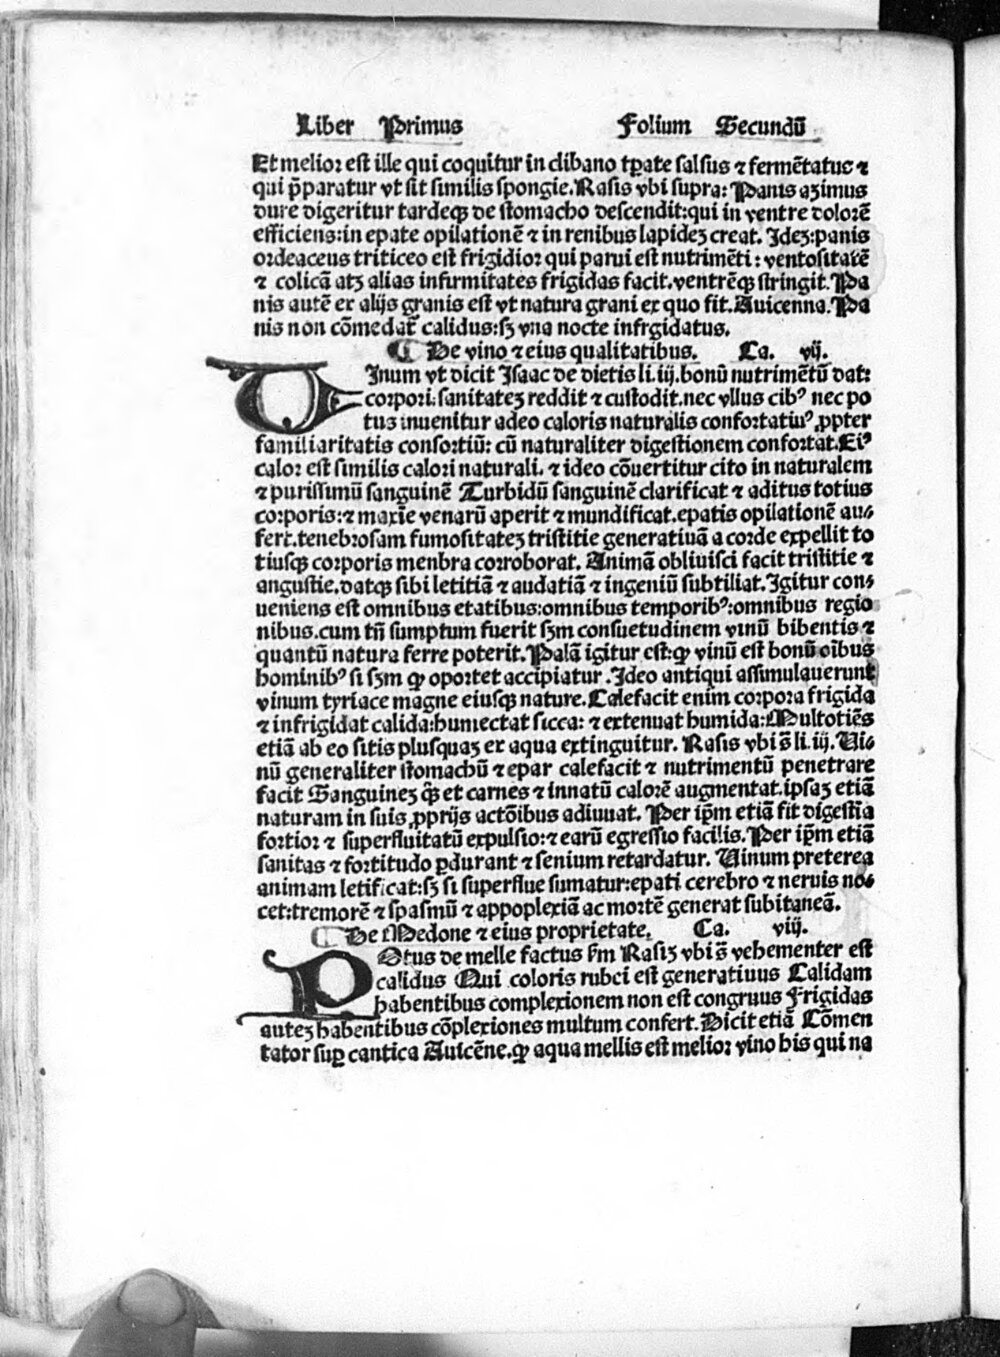 Liber Primus Folium Secundū
Et melior est ille qui coquitur in clibano tꝑate salsus ⁊ fermētatus ⁊
qui p̄paratur vt sit similis spongie. Rasis vbi supra: Panis azimus
dure digeritur tardeqꝫ de stomacho descendit: qui in ventre dolorē
efficiens: in epate opilationē ⁊ in renibus lapideꝫ creat. Ideꝫ: panis
ordeaceus triticeo est frigidior qui parui est nutrimēti: ventositatē
⁊ colicā atꝫ alias infirmitates frigidas facit. ventrēqꝫ stringit. Pa
nis autē ex alijs granis est vt natura grani ex quo fit. Auicenna. Pa
nis non cōmedat᷑ calidus: sꝫ vna nocte infrgidatus.
¶ De vino ⁊ eius qualitatibus. Ca. vij.
VInum vt dicit Isaac de dietis li. iij. bonū nutrimētū dat:
corpori: sanitateꝫ reddit ⁊ custodit. nec vllus cibꝰ nec po
tus inuenitur adeo caloris naturalis confortatiuꝰ ꝓpter
familiaritatis consortiū: cū naturaliter digestionem confortat. Eiꝰ
calor est similis calori naturali. ⁊ ideo cōuertitur cito in naturalem
⁊ purissimū sanguinē Turbidū sanguinē clarificat ⁊ aditus totius
corporis: ⁊ maxīe venarū aperit ⁊ mundificat. epatis opilationē au⸗
fert. tenebrosam fumositateꝫ tristitie generatiuā a corde expellit to
tiusqꝫ corporis menbra corroborat. Animā obliuisci facit tristitie ⁊
angustie. datqꝫ sibi letitiā ⁊ audatiā ⁊ ingeniū subtiliat. Igitur con⸗
ueniens est omnibus etatibus: omnibus temporibꝰ: omnibus regio
nibus. cum tn̄ sumptum fuerit sꝫm consuetudinem vinū bibentis ⁊
quantū natura ferre poterit. Palā igitur est: ꝙ vinū est bonū oībus
hominibꝰ si sꝫm ꝙ oportet accipiatur. Ideo antiqui assimulauerunt
vinum tyriace magne eiusqꝫ nature. Calefacit enim corpora frigida
⁊ infrigidat calida: humectat sicca: ⁊ extenuat humida: Multotiēs
etiā ab eo sitis plusquaꝫ ex aqua extinguitur. Rasis vbi s̄ li. iij. Ui⸗
nū generaliter stomachū ⁊ epar calefacit ⁊ nutrimentū penetrare
facit Sanguineꝫ q̄ꝫ et carnes ⁊ innatū calorē augmentat. ipsaꝫ etiā
naturam in suis ꝓprijs actōibus adiuuat. Per ip̄m etiā fit digestia
fortior ⁊ superfluitatū expulsio: ⁊ earū egressio facilis. Per ip̄m etiā
sanitas ⁊ fortitudo ꝑdurant ⁊ senium retardatur. Uinum preterea
animam letificat: sꝫ si superflue sumatur: epati cerebro ⁊ neruis no⸗
cet: tremorē ⁊ spasmū ⁊ appoplexiā ac mortē generat subitaneā.
¶ De Medone ⁊ eius proprietate. Ca. viij.
POtus de melle factus s̄m Rasiꝫ vbi s̄ vehementer est
calidus Qui coloris rubei est generatiuus Calidam
habentibus complexionem non est congruus Frigidas
auteꝫ habentibus cōplexiones multum confert. Dicit etiā Cōmen
tator suꝑ cantica Auicēne. ꝙ aqua mellis est melior vino his qui na